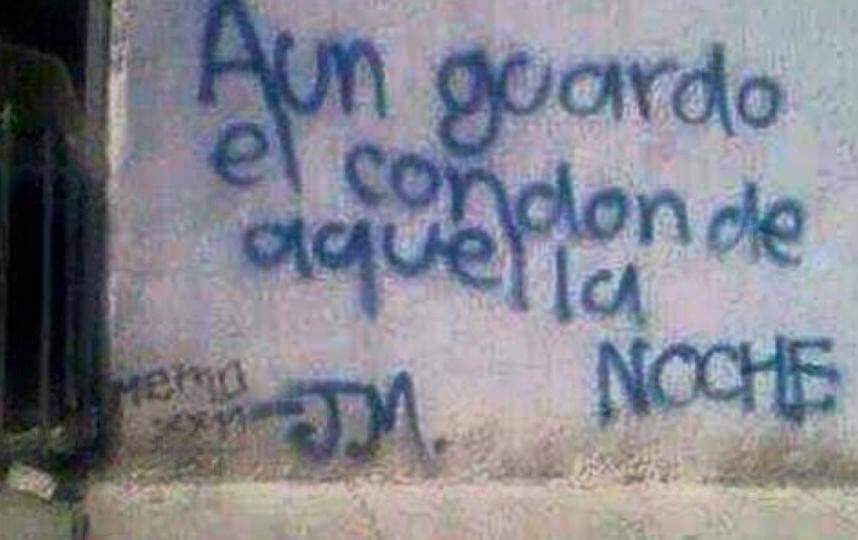 Aun guardo
el condon de
aquella
NOCHE
memo
JM.